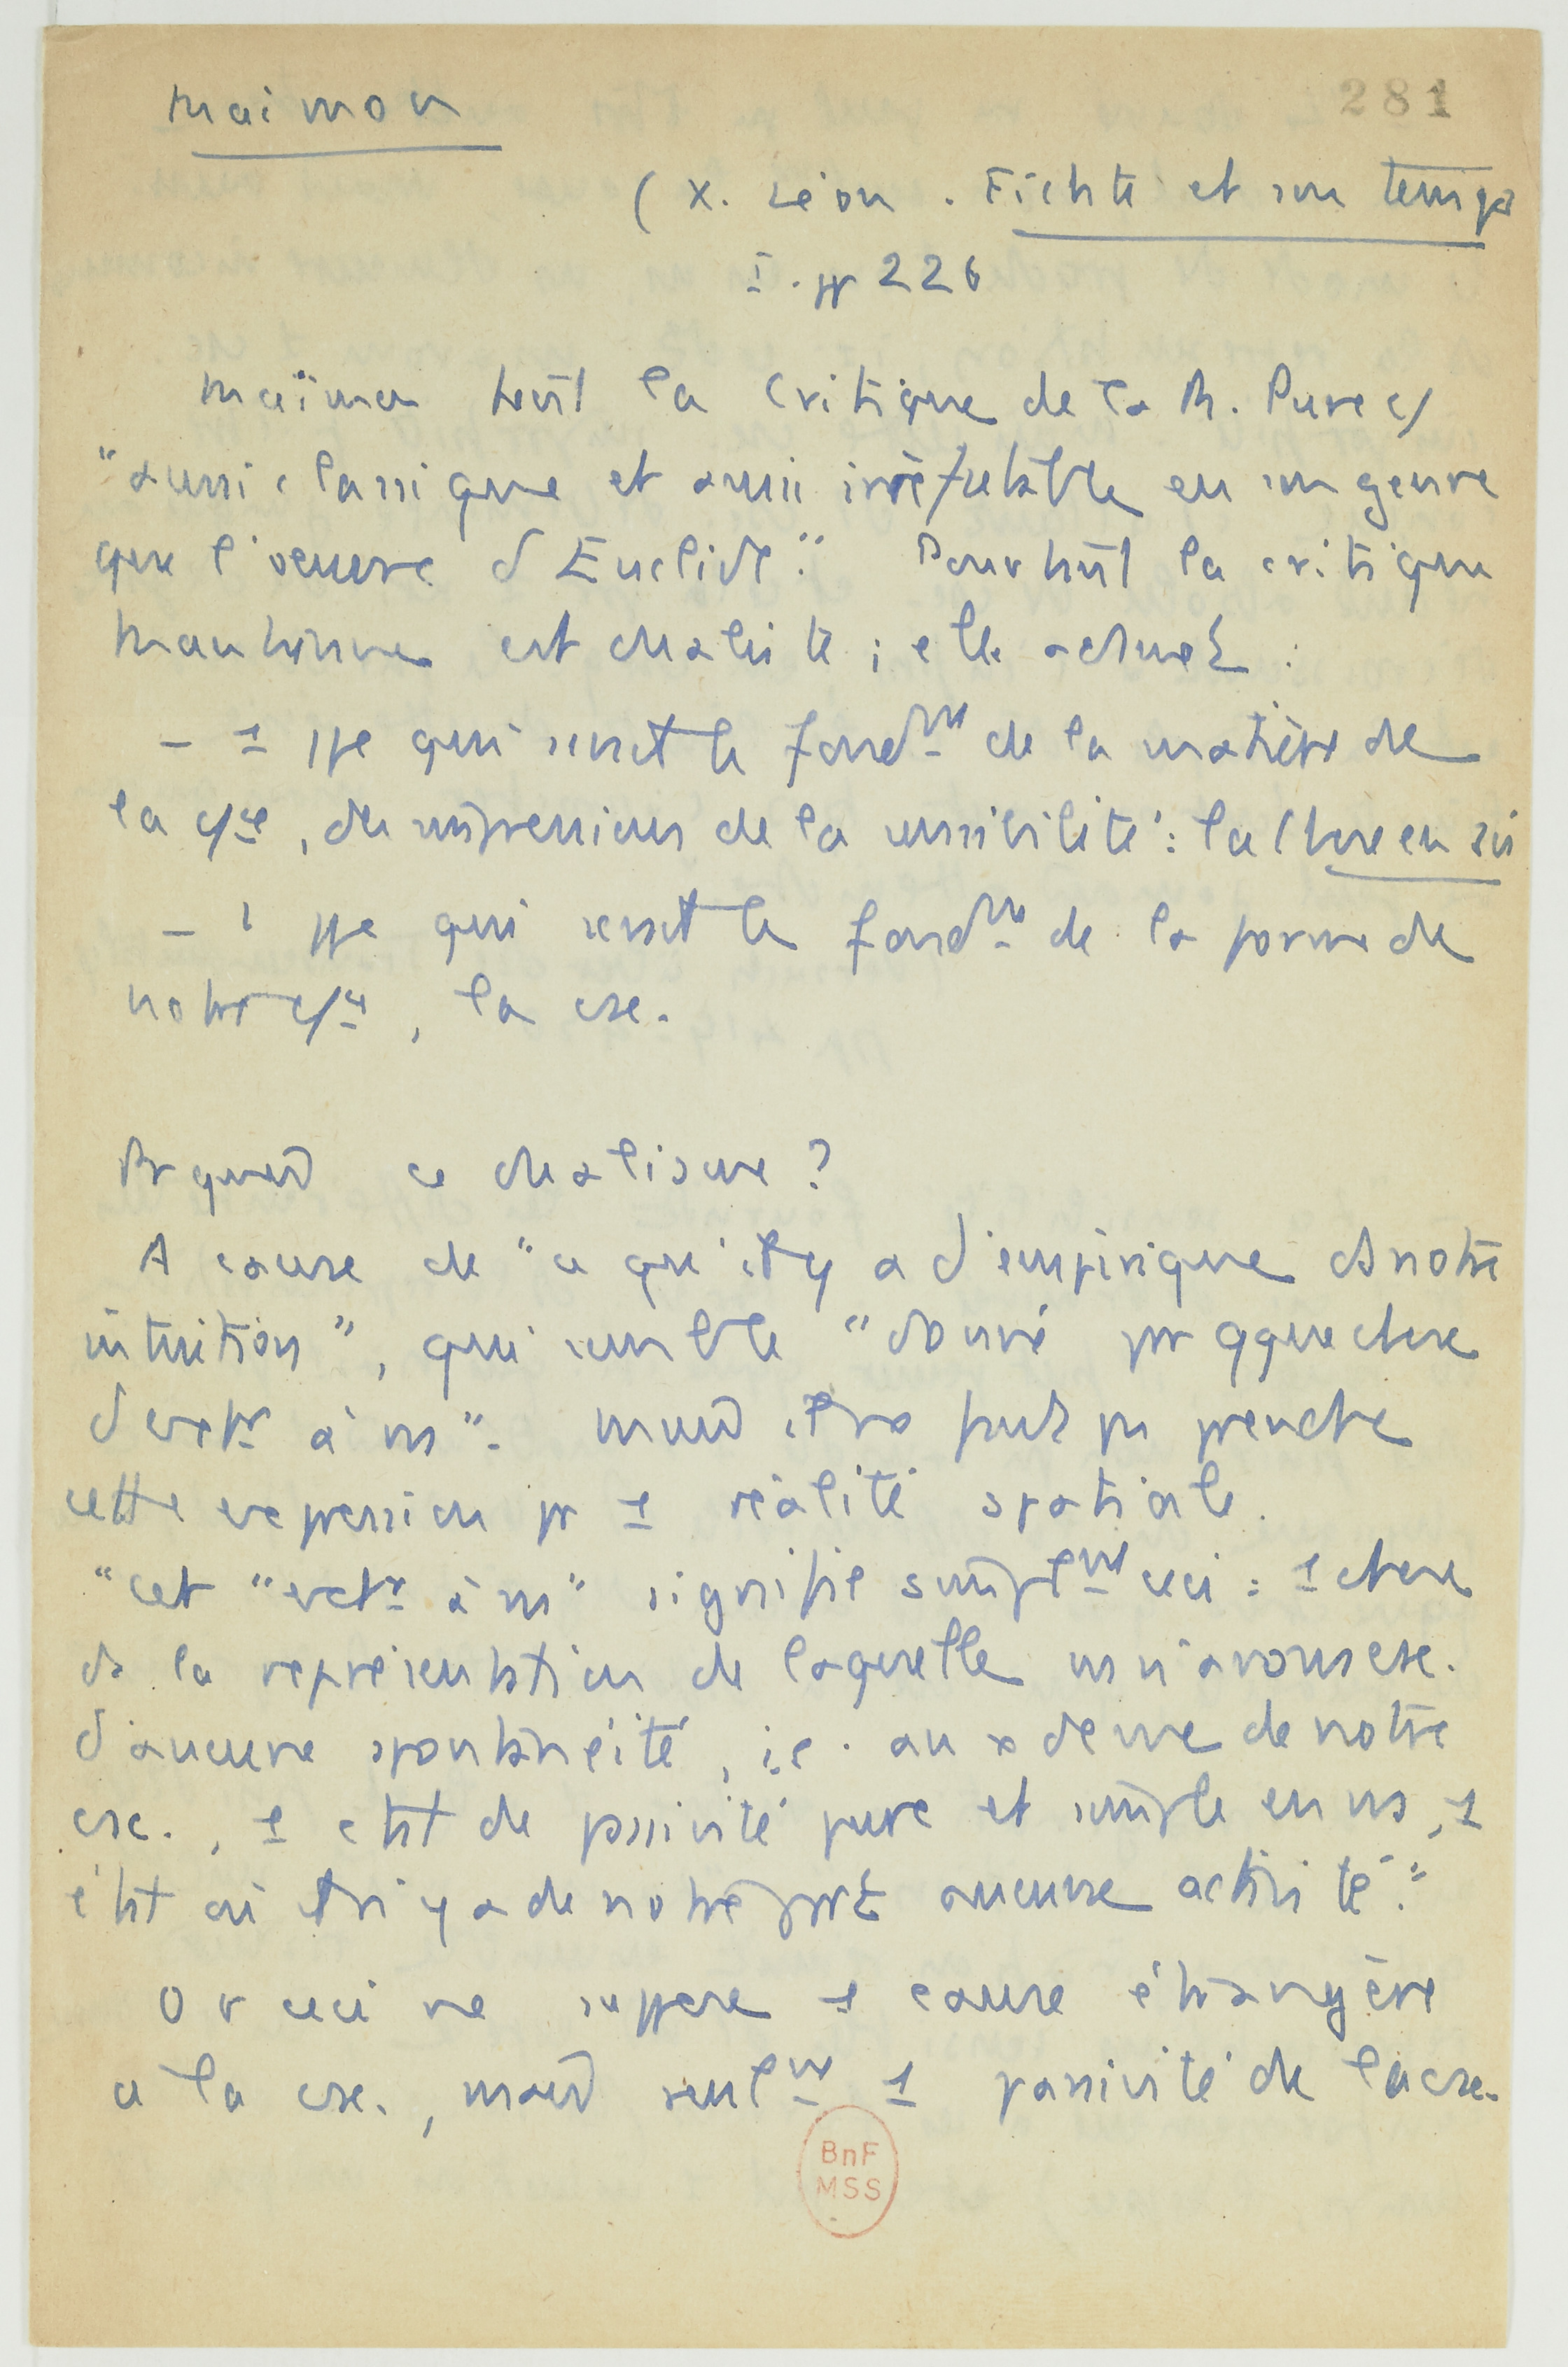 Maimon
281
( X. Léon . Fichte et son temps
I. pp 226
Maïmon tient la Critique de la R. Pure c/
"aussi classique et aussi irréfutable en son genre
que l'oeuvre d'Euclide". Pourtant la critique
kantienne est dualiste ; elle admet :
– 1 ppe qui serait le fondmt de la matière de
la c/ce, des impressions de la sensibilité : la Chose en soi
– 1 ppe qui serait le fondmt de la forme de
notre c/ce, la cse.
Pr quoi ce dualisme ?
A cause de "ce qu'il y a d'empirique ds notre
intuition", qui semble "donné par qque chose
d'extr à ns". Mais il ne faut pas prendre
cette expression pr 1 réalité spatiale.
"cet "extr à ns" signifie simplemt ceci : 1 chose
ds la représentation de laquelle ns n'avons cse.
d'aucune spontanéité, i.e. au x de me de notre
cse., 1 état de passivité pure et simple en ns, 1
état où il n'y a de notre part aucune activité".
Or ceci ne suppose 1 cause étrangère
a la cse., mais seulmt 1 passivité de la cse.
BnF
MSS